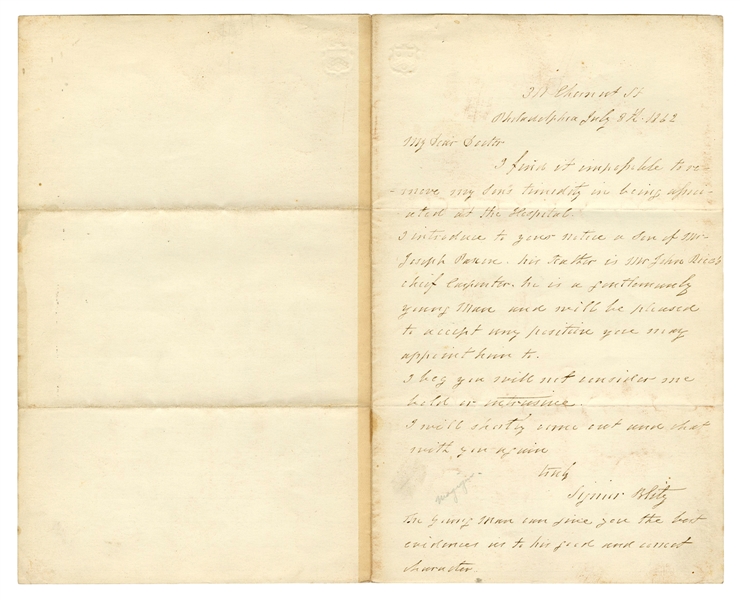 Chesnut St
Philadelphia July 8th 1862
My Dear Doctor
I find it impossible to re-
move my Son's timidity in being associ-
ated at the Hospital.
I introduce to your notice a Son of Mr
Joseph his Father is Mr John
chief Carpenter. he is a gentlemanly
young Man and will be pleased
to accept any position you may
appoint him to.
I beg you will not consider me
bold or intrusive.
I will shortly come out and chat
with you again
truly
Signor Blitz
The Young Man can give you the best
evidences as to his good and correct
character.